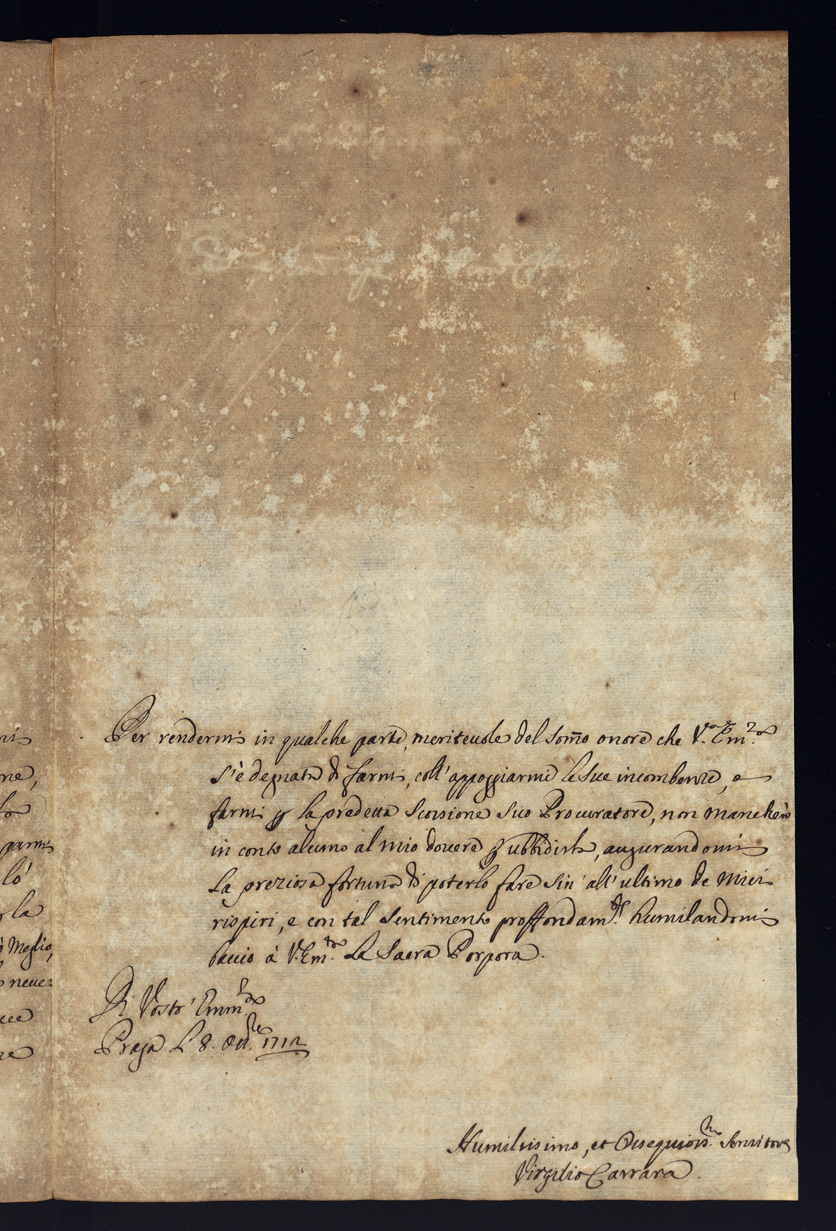 Per rendermi in qualche parte meriteuole del som̃o onore che V.ra Em.za
s'è degnata di farmi, coll'appoggiarmi le Sue incombenze, e
farmi p la predetta Scossione Suo Procuratore, non mancherò
in conto alcuno al mio douere p ubbidirla, augurandomi
la preziosa fortuna di poterlo fare sin' all' ultimo de miei
rispiri, e con tal sentimento proffondam.te humiliandomi
baccio à V. Em.za La Sacra Porpora.
Di Vostr' Emm.za
Praga L 8. Ott.re 1712
Humilissimo, et Ossequiosis.mo Seruitore
Virgilio Carrara.
parmi
lò
rla
Meglio,
neue